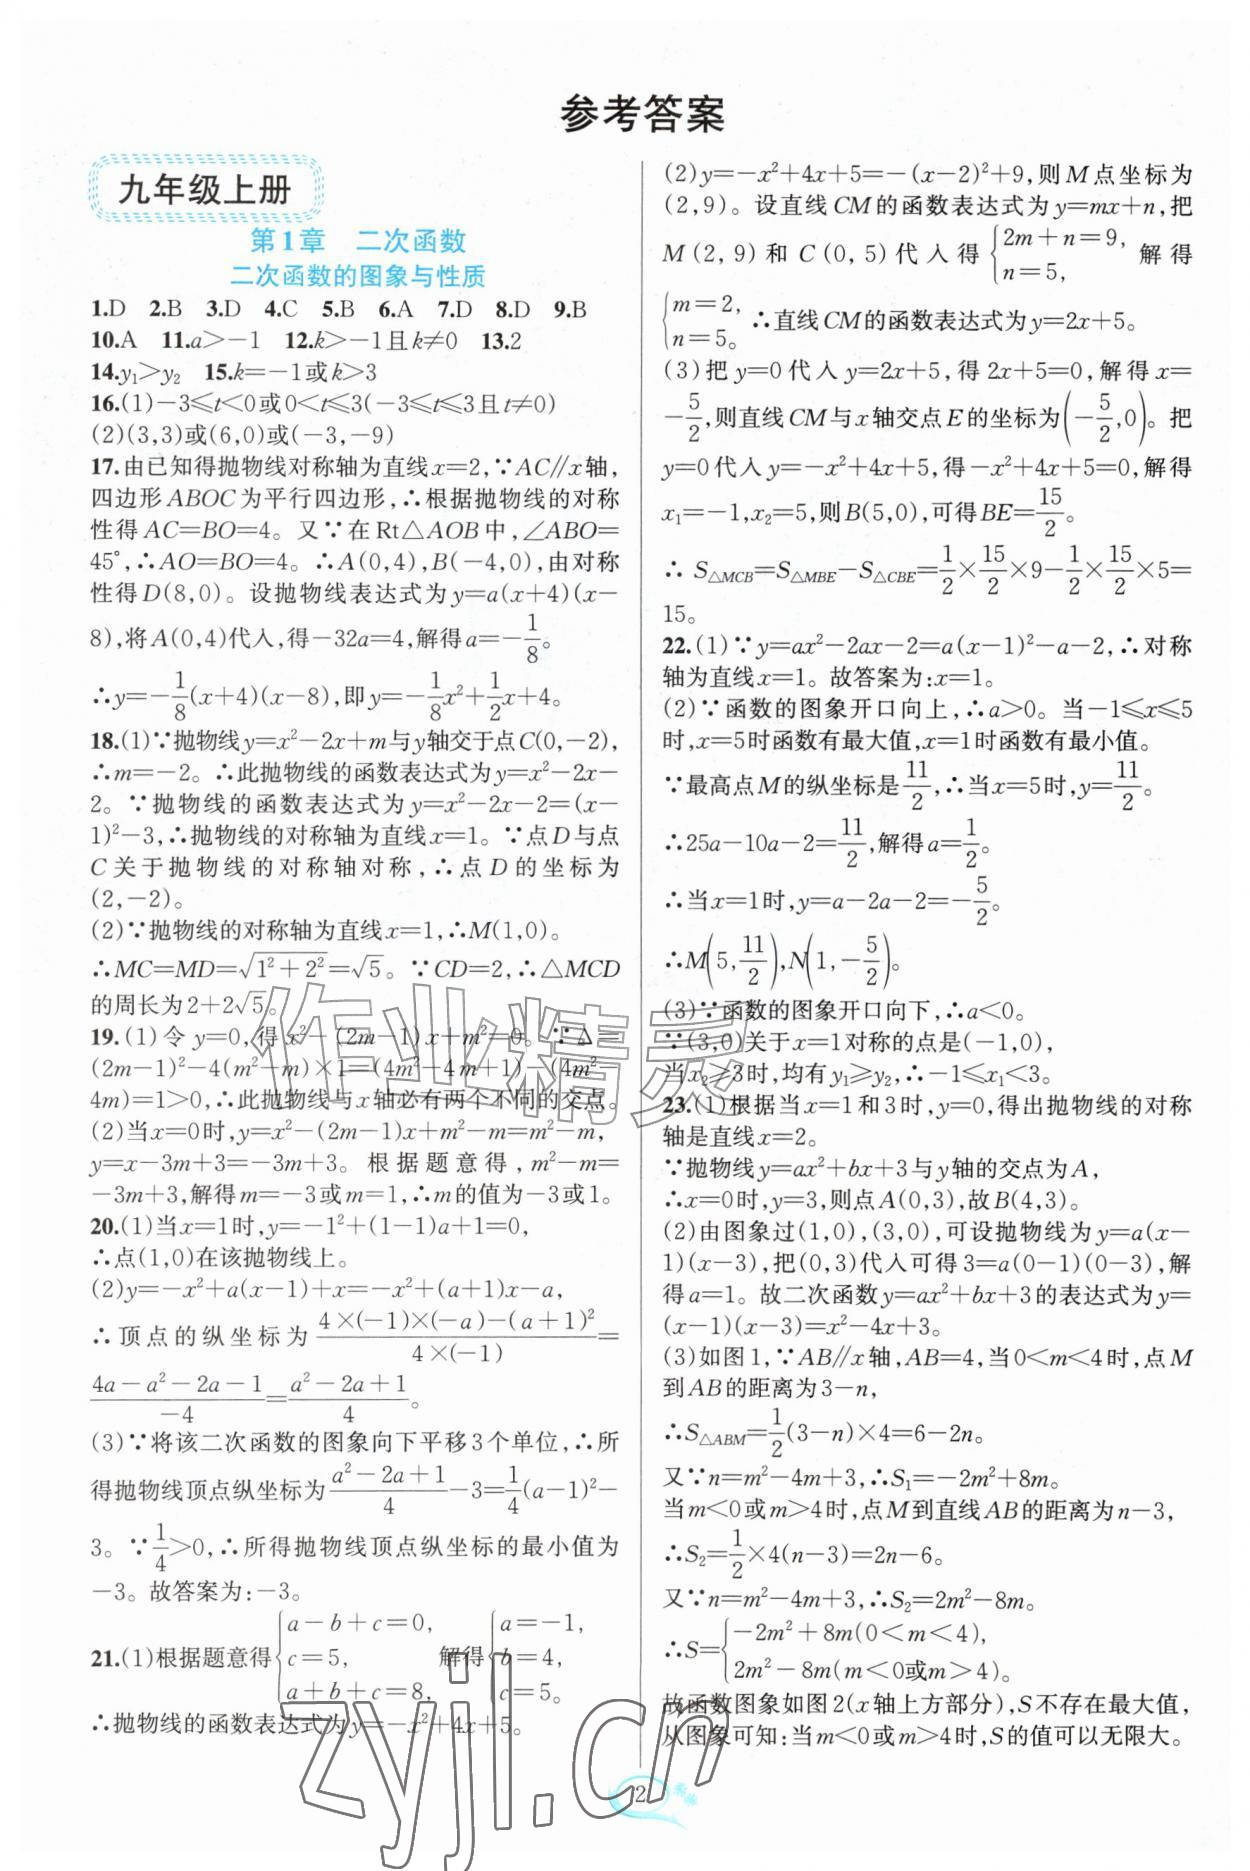 参考答案
九年级上册
第1章　二次函数
二次函数的图象与性质
1.D　2.B　3.D　4.C　5.B　6.A　7.D　8.D　9.B
10.A　11.a＞－1　12.k＞－1且k≠0　13.2
14.y₁＞y₂　15.k＝－1或k＞3
16.(1)－3≤t＜0或0＜t≤3(－3≤t≤3且t≠0)
(2)(3,3)或(6,0)或(－3,－9)
17.由已知得抛物线对称轴为直线x＝2,∵AC∥x轴,
四边形ABOC为平行四边形,∴根据抛物线的对称
性得AC＝BO＝4。又∵在Rt△AOB中,∠ABO＝
45°,∴AO＝BO＝4。∴A(0,4),B(－4,0),由对称
性得D(8,0)。设抛物线表达式为y＝a(x＋4)(x－
8),将A(0,4)代入,得－32a＝4,解得a＝－1/8。
∴y＝－1/8(x＋4)(x－8),即y＝－1/8x²＋1/2x＋4。
18.(1)∵抛物线y＝x²－2x＋m与y轴交于点C(0,－2),
∴m＝－2。∴此抛物线的函数表达式为y＝x²－2x－
2。∵抛物线的函数表达式为y＝x²－2x－2＝(x－
1)²－3,∴抛物线的对称轴为直线x＝1。∵点D与点
C关于抛物线的对称轴对称,∴点D的坐标为
(2,－2)。
(2)∵抛物线的对称轴为直线x＝1,∴M(1,0)。
∴MC＝MD＝√(1²＋2²)＝√5。∵CD＝2,∴△MCD
的周长为2＋2√5。
19.(1)令y＝0,得x²－(2m－1)x＋m²＝0。∵Δ＝
(2m－1)²－4(m²－m)×1＝(4m²－4m＋1)－(4m²－
4m)＝1＞0,∴此抛物线与x轴必有两个不同的交点。
(2)当x＝0时,y＝x²－(2m－1)x＋m²－m＝m²－m,
y＝x－3m＋3＝－3m＋3。根据题意得,m²－m＝
－3m＋3,解得m＝－3或m＝1,∴m的值为－3或1。
20.(1)当x＝1时,y＝－1²＋(1－1)a＋1＝0,
∴点(1,0)在该抛物线上。
(2)y＝－x²＋a(x－1)＋x＝－x²＋(a＋1)x－a,
∴顶点的纵坐标为(4×(－1)×(－a)－(a＋1)²)/(4×(－1))＝
(4a－a²－2a－1)/(－4)＝(a²－2a＋1)/4。
(3)∵将该二次函数的图象向下平移3个单位,∴所
得抛物线顶点纵坐标为(a²－2a＋1)/4－3＝1/4(a－1)²－
3。∵1/4＞0,∴所得抛物线顶点纵坐标的最小值为
－3。故答案为:－3。
21.(1)根据题意得{a－b＋c＝0, c＝5, a＋b＋c＝8, 解得{a＝－1, b＝4, c＝5。
∴抛物线的函数表达式为y＝－x²＋4x＋5。
(2)y＝－x²＋4x＋5＝－(x－2)²＋9,则M点坐标为
(2,9)。设直线CM的函数表达式为y＝mx＋n,把
M(2,9)和C(0,5)代入得{2m＋n＝9, n＝5, 解得
{m＝2, n＝5。∴直线CM的函数表达式为y＝2x＋5。
(3)把y＝0代入y＝2x＋5,得2x＋5＝0,解得x＝
－5/2,则直线CM与x轴交点E的坐标为(－5/2,0)。把
y＝0代入y＝－x²＋4x＋5,得－x²＋4x＋5＝0,解得
x₁＝－1,x₂＝5,则B(5,0),可得BE＝15/2。
∴S△MCB＝S△MBE－S△CBE＝1/2×15/2×9－1/2×15/2×5＝
15。
22.(1)∵y＝ax²－2ax－2＝a(x－1)²－a－2,∴对称
轴为直线x＝1。故答案为:x＝1。
(2)∵函数的图象开口向上,∴a＞0。当－1≤x≤5
时,x＝5时函数有最大值,x＝1时函数有最小值。
∵最高点M的纵坐标是11/2,∴当x＝5时,y＝11/2。
∴25a－10a－2＝11/2,解得a＝1/2。
∴当x＝1时,y＝a－2a－2＝－5/2。
∴M(5,11/2),N(1,－5/2)。
(3)∵函数的图象开口向下,∴a＜0。
∵(3,0)关于x＝1对称的点是(－1,0),
当x₂≥3时,均有y₁≥y₂,∴－1≤x₁＜3。
23.(1)根据当x＝1和3时,y＝0,得出抛物线的对称
轴是直线x＝2。
∵抛物线y＝ax²＋bx＋3与y轴的交点为A,
∴x＝0时,y＝3,则点A(0,3),故B(4,3)。
(2)由图象过(1,0),(3,0),可设抛物线为y＝a(x－
1)(x－3),把(0,3)代入可得3＝a(0－1)(0－3),解
得a＝1。故二次函数y＝ax²＋bx＋3的表达式为y＝
(x－1)(x－3)＝x²－4x＋3。
(3)如图1,∵AB∥x轴,AB＝4,当0＜m＜4时,点M
到AB的距离为3－n,
∴S△ABM＝1/2(3－n)×4＝6－2n。
又∵n＝m²－4m＋3,∴S₁＝－2m²＋8m。
当m＜0或m＞4时,点M到直线AB的距离为n－3,
∴S₂＝1/2×4(n－3)＝2n－6。
又∵n＝m²－4m＋3,∴S₂＝2m²－8m。
∴S＝{－2m²＋8m(0＜m＜4), 2m²－8m(m＜0或m＞4)。
故函数图象如图2(x轴上方部分),S不存在最大值,
从图象可知:当m＜0或m＞4时,S的值可以无限大。
2
作业精灵
zyjl.cn